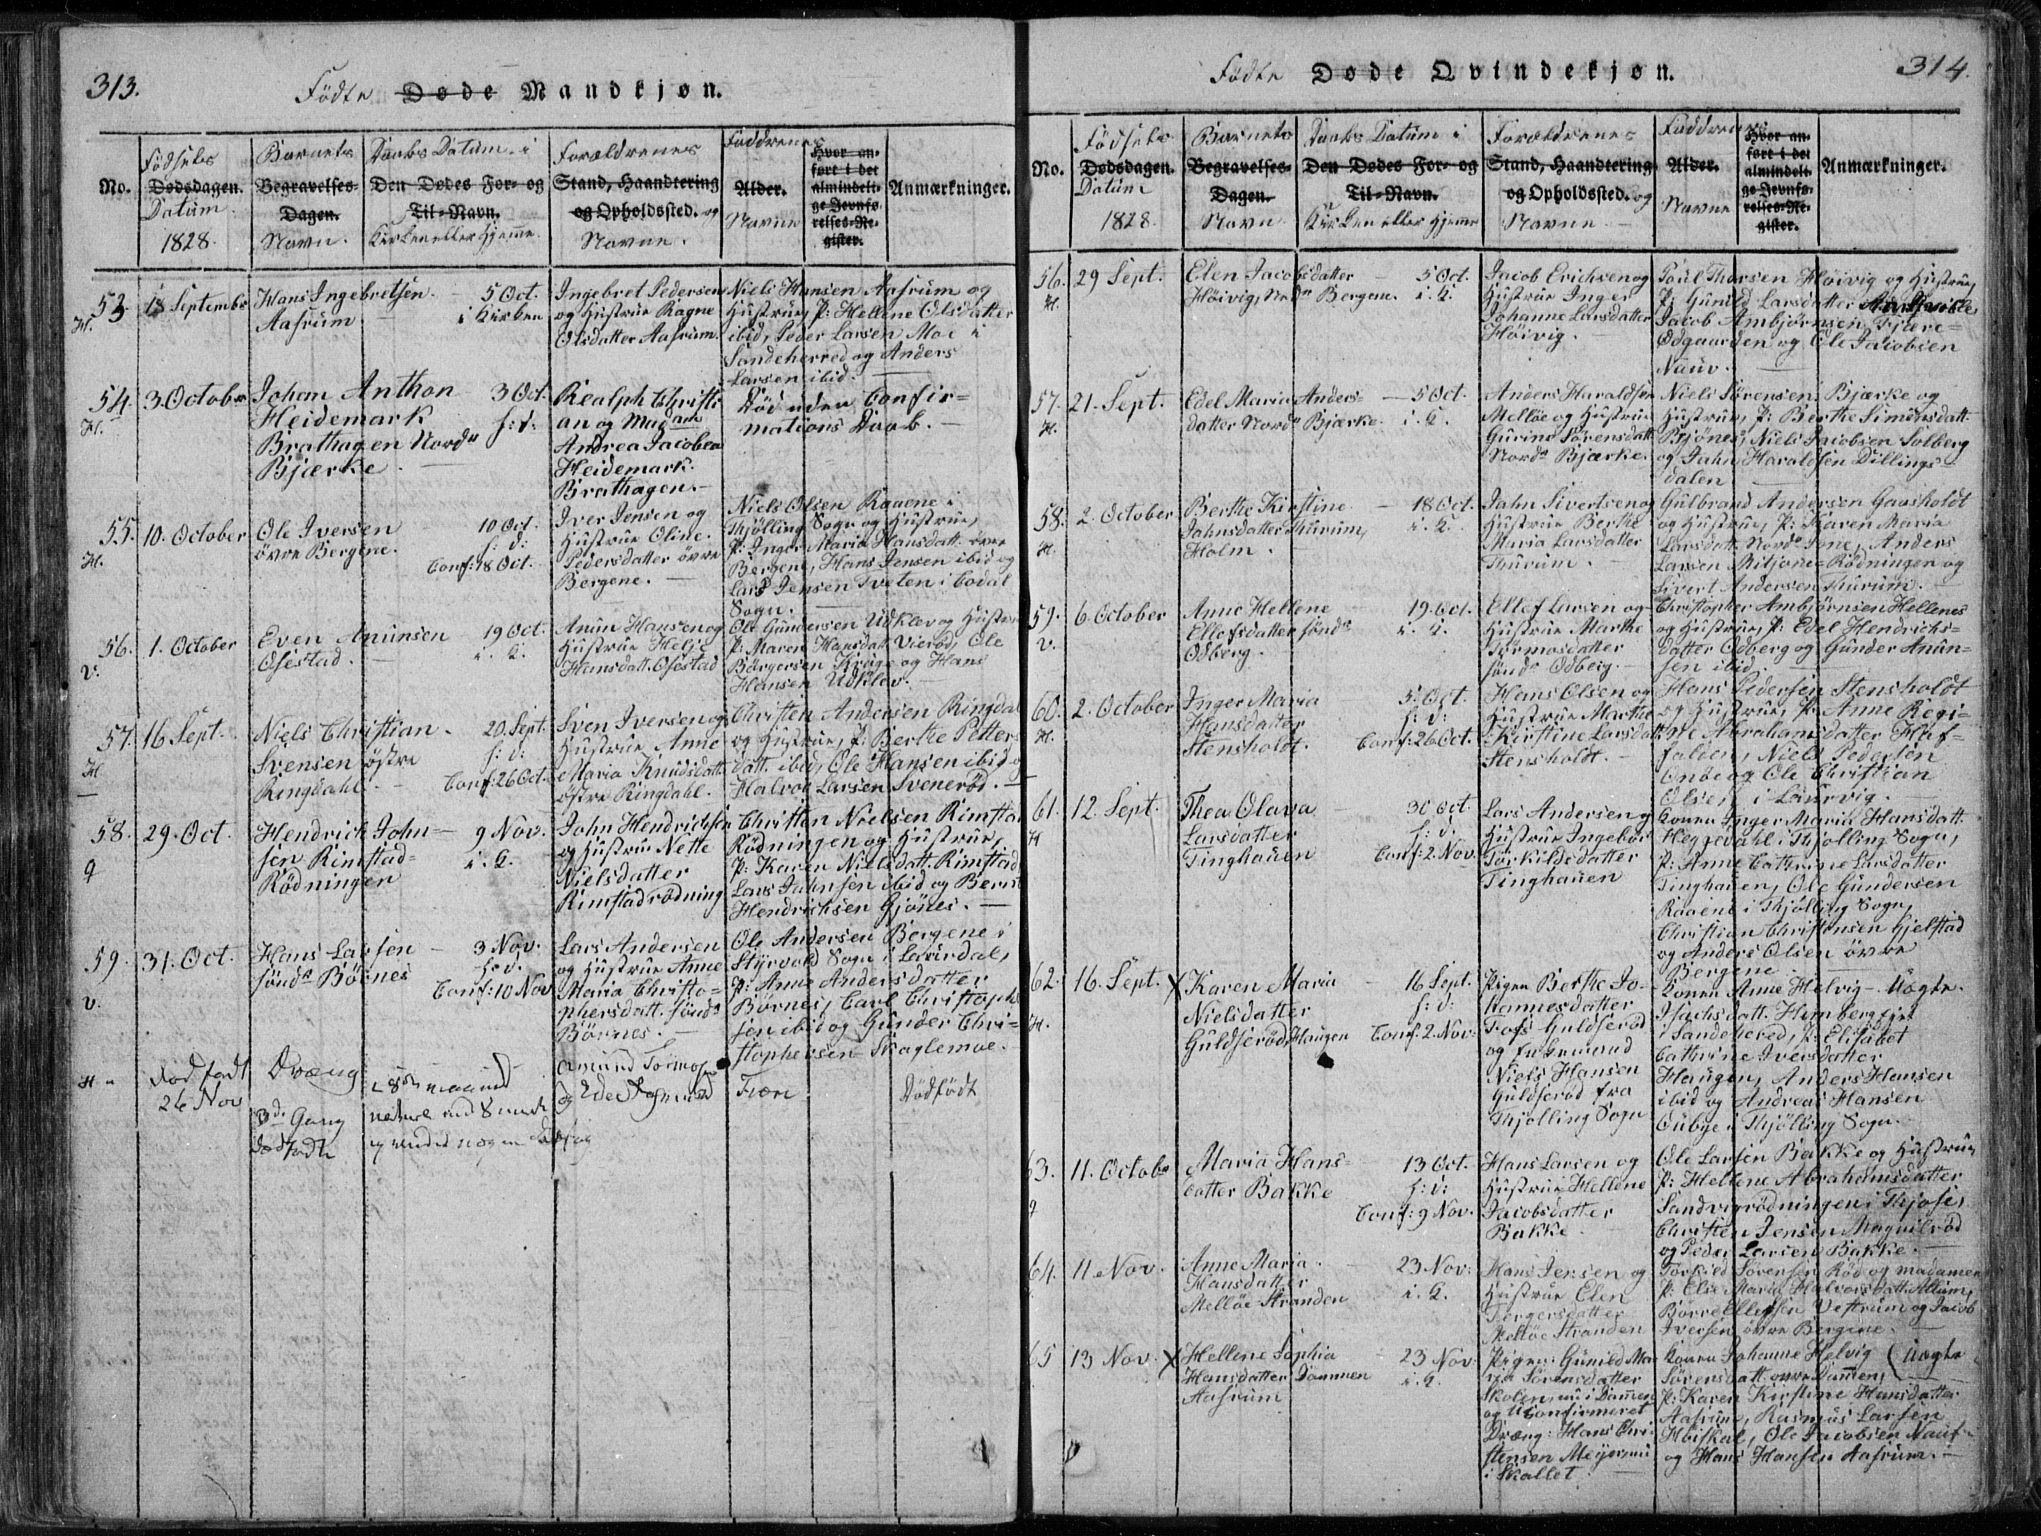 313.
Fødte Døde Mandkjøn.
No.
Fødsels
Dødsdagen.
Datum
1828.
Barnets
Begravelses-
Dagen.
Navn.
Daabs Datum i
Den Dødes For- og
Til-Navn.
Kirken eller Hjeme.
Forældrenes
Stand, Haandtering
og Opholdssted. og
Navne.
Faddrenes
Alder.
Navne
Hvor an-
ført i det
almindeli-
ge Jevnfø-
relses-Re-
gister.
Anmærkninger.
53.
H.
18 Septembr
Hans Ingebretsen
Aasrum
5 Oct.
i Kirken
Ingebret Pedersen
og Hustrue Ragne
Olsdatter Aasrum.
Niels Hansen Aasrum og
Hustrue, P: Hellene Olsdatter
ibid, Peder Larsen Moe i
Sandeherred og Anders
Larsen ibid.
54.
H.
3. October
Johan Anthon
Heidemark
Brathagen Nordre
Bjærke
3 Oct.
h: d:
Realph Christi
an og Madam
Andrea Jacobea
Heidemark.
Brathagen.
Død uden Confir-
mations Daab.
55.
H.
10. October
Ole Iversen
øvre Bergene.
10 Oct.
h: d:
Conf: 18 Oct.
Iver Jensen og
Hustrue Oline
Pedersdatter øvre
Bergene.
Niels Olsen Rauene i
Thjølling Sogn og Hustrue,
P: Inger Maria Hansdatt. øvre
Bergene, Hans Jensen ibid og
Lars Jensen Tveten i Codal
Sogn.
56.
V.
1. October
Even Anunsen
Ofestad.
19 Oct.
i. K.
Anun Hansen og
Hustrue Helje
Hansdatt. Ofestad
Ole Gundersen Udklev og Hustrue
P: Maren Hansdatt. Vierød, Ole
Børgersen Kruge og Hans
Hansen Udklev.
57.
H
16 Sept.
Niels Christian
Svensen østre
Ringdahl.
20. Sept.
h: d:
Conf: 26 Oct.
Sven Iversen og
Hustrue Anne
Maria Knudsdatt.
østre Ringdahl.
Christen Andersen Ringdal
og Hustrue, P: Berthe Petters
datt. ibid, Ole Hansen ibid og
Halvor Larsen Svenerød.
58.
29. Oct.
Hendrich John-
sen Rimstad-
Rødningen
9 Nov.
i. K.
John Hendrichsen
og Hustrue Nette
Nielsdatter
Rimstadrødning
Christen Nielsen Rimstad
Rødningen og Hustrue,
P: Karen Nielsdatt. Rimstad
Lars Jahnsen ibid og Bernt
Hendrichsen Gjønes.
59.
V.
31. Oct.
Hans Larsen
søndr Børnes
3 Nov.
h: d.
Conf: 10 Nov
Lars Andersen
og Hustrue Anne
Maria Christo-
phersdatt. søndr
Børnes.
Ole Andersen Bergene i
Styrvold Sogn i Laurdal,
P: Anne Andersdatter
Børnes, Carl Christoph
sen ibid og Gunder Chri-
stophersen Skaglemoe.
H
Dødfødt
26 Nov
Dræng
3de Gang
dødfødt
Amund Tormosen
Dødfødt
314.
Fødte Døde Qvindekjøn.
No.
Fødsels
Dødsdagen.
Datum
1828.
Barnets
Begravelses-
Dagen.
Navn
Daabs Datum i
Den Dødes For- og
Til-Navn.
Kirken eller Hjeme
Forældrenes
Stand, Haandtering
og Opholdssted. og
Navne
Faddrenes
Alder.
Navne
Hvor an-
ført i det
almindeli-
ge Jevnfø-
relses-Re-
gister.
Anmærkninger.
56.
H.
29 Sept.
Elen Jacobsdatter
Høivig, Nordr Bergene.
5 Oct.
i. K.
Jacob Erichsen og
Hustrue Inger
Johanne Larsdatter
Høivig.
Poul Thorsen Høivig og Hustrue,
P: Gunild Larsdatter
Jacob Ambjørnsen Fjære-
Ødgaarden og Ole Jacobsen
Nauv.
57.
H.
21. Sept.
Edel Maria Anders-
datter Nordr Bjærke.
5 Oct.
i. K.
Anders Haraldsen
Melløe og Hustrue
Gurine Sørensdatt.
Nordr Bjærke.
Niels Sørensen Bjærke og
Hustrue, P: Berthe Simensdatt
Bjønes, Niels Jacobsen Solberg
og Jahn Haraldsen Dillings-
dalen
58.
H.
2. October
Berthe Kirstine
Jahnsdatter Thurum,
Holm.
18 Oct.
i. K.
Jahn Sivertsen og
Hustrue Berthe
Maria Larsdatter
Thurum.
Gulbrand Andersen Gaasholdt
og Hustrue, P: Karen Maria
Larsdatt. Nordr Fone, Anders
Larsen Miljone-Rødningen og
Sivert Andersen Thurum.
59.
V.
6. October
Anne Hellene
Ellefsdatter søndr
Odberg.
19. Oct.
i. K.
Ellef Larsen og
Hustrue Marthe
Tormosdatter
søndr Odberg.
Christopher Ambjørnsen Hellenes
og Hustrue, P: Edel Hendrichs-
datter Odberg og Gunder Anun-
sen ibid.
60.
H.
2. October
Inger Maria
Hansdatter
Stensholdt.
5 Oct.
h: d:
Conf: 26 Oct.
Hans Olsen og
Hustrue Marthe
Kirstine Larsdatt
Stensholdt.
Hans Pedersen Stensholdt
og Hustrue, P: Anne Regi-
ne Abrahamsdatter Huf-
falden, Niels Pedersen
Onbe og Ole Christian
Olsen i Laurvig.
61.
H
12. Sept.
Thea Olava
Larsdatter
Tinghauen
30 Oct.
h: d:
Conf: 2. Nov.
Lars Andersen og
Hustrue Ingebor
Torkildsdatter
Tinghauen
Konen Inger Maria Hansdatt.
Heggedahl i Thjølling Sogn,
P: Anne Cathrine Larsdatter
Tinghauen, Ole Gundersen
Rauene i Thjølling Sogn,
Christian Christensen Gjelstad
og Anders Olsen øvre
Bergene.
62.
H.
16. Sept.
X
Karen Maria
Nielsdatter
Guldserød, Haugen
16 Sept.
h: d:
Conf: 2. Nov:
Pigen Berthe Jo-
hannesdatter
Foss Guldserød
og Enkemand
Niels Hansen
Guldserød fra
Thjølling Sogn
Konen Anne Helvig Uægte.
Isachsdatt. Himberg
i Sandehered, P: Elisabet
Cathrine Iversdatter
Haugen, Anders Hansen
ibid og Andreas Hansen
Oubye i Thjølling Sogn.
63.
11. Octobr
Maria Hans-
datter Bakke
13 Oct.
h: d:
Conf: 9 Nov.
Hans Larsen og
Hustrue Hellene
Jacobsdatter
Bakke
Ole Larsen Bakke og Hustrue
P: Hellene Abrahamsdatter
Sandvigrødningen i Thjose,
Christen Jensen Magnilrød
og Peder Larsen Bakke.
64.
11 Nov.
Anne Maria
Hansdatter
Melløe Stranden
23 Nov:
i. K.
Hans Jensen og
Hustrue Elen
Børgersdatter
Melløe Stranden
Torkild Sørensen Rød og madamen
P: Else Maria Halvorsdatt. Allum,
Børre Ellefsen Vestrum og Jacob
Iversen øvre Bergene.
65
13 Nov.
X
Hellene Sophia
Hansdatter Dammen
Aasrum
23 Nov:
i. K.
Pigen: Gunild Ma-
ria Sørensdatter
Skolen, nu i Damen
og Uconfirmeret
Dræng: Hans Chri-
stensen Meyer nu
i Skallet
Konen Johanne Helvig (Uægte
Sørensdatt. øvre Damen,
P: Karen Kirstine Hansdatter
Aasrum, Rasmus Larsen
Høiskal, Ole Jacobsen Nauf
og Hans Hansen Aasrum.